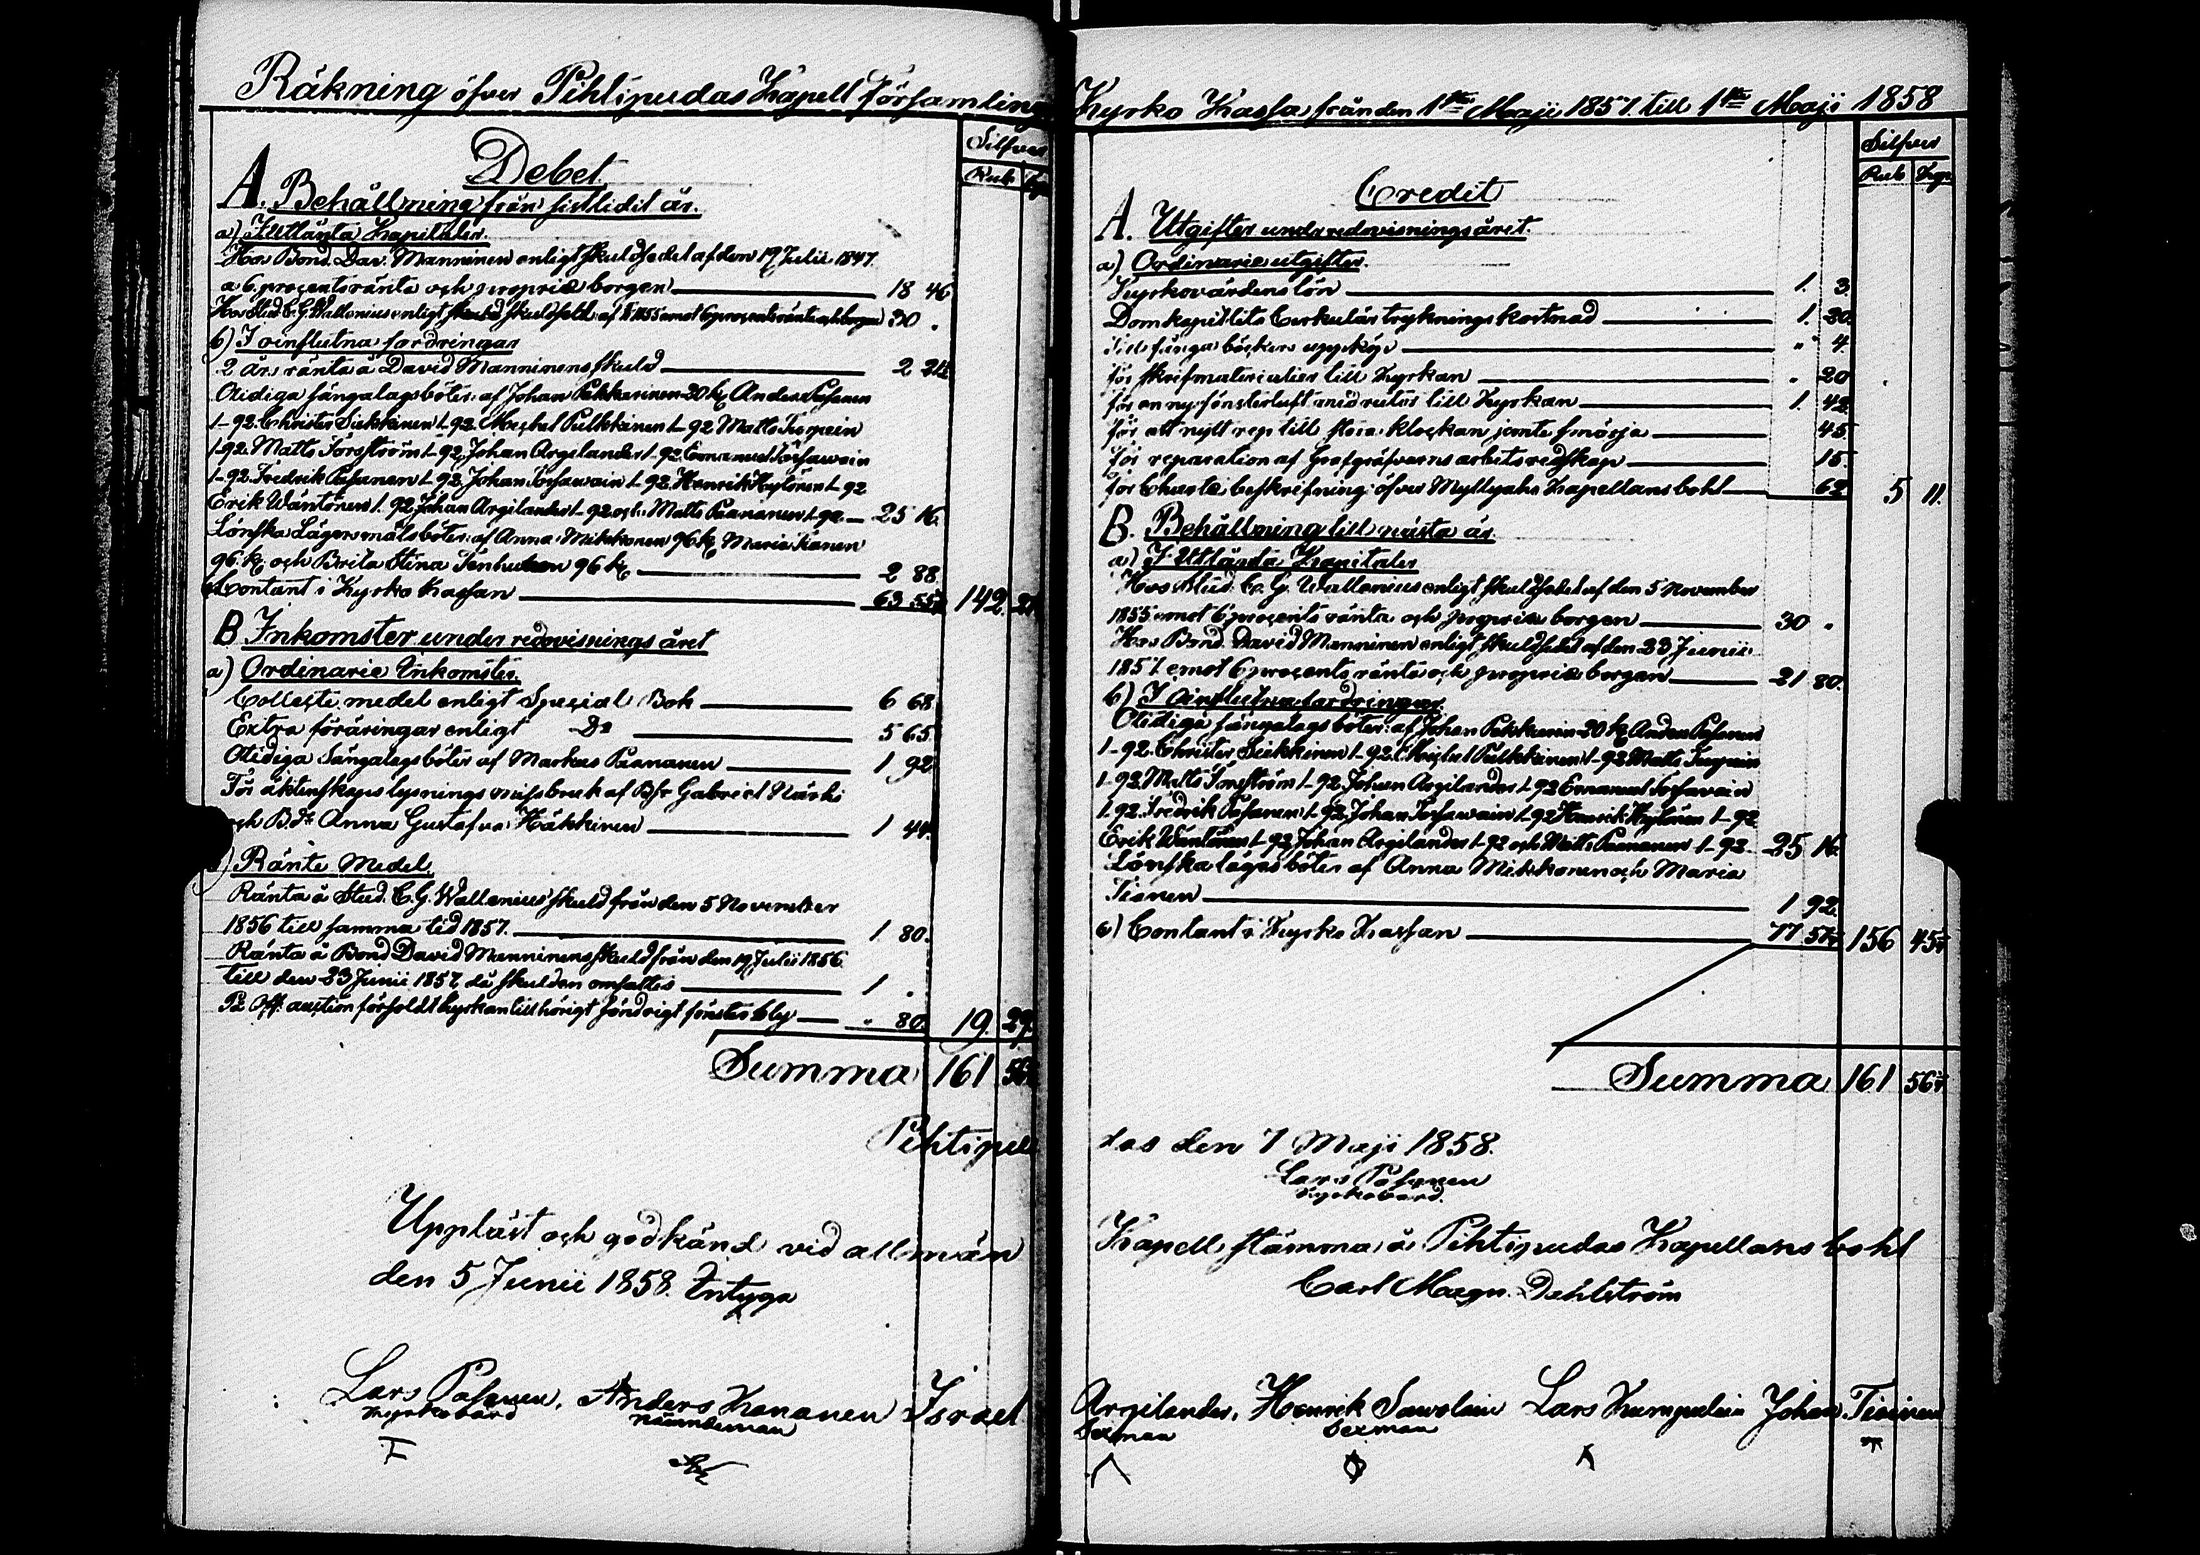 Räkning öfver Pihtipudas Kapell Församlings
Debet
Silfver
Rub. Kop.
A. Behållning från sistlidit år.
a) I Utlånta Kapitaler.
Hos Bond. Dav. Manninen enligt skuldsedel af den 19 Julii 1847.
a 6 procents ränta och proprie borgen 18 46
Hos Stud. C. G. Wallenius enligt skuldsedel af 5/11 1855 emot 6 procents ränta och borgen 30 .
b) I oinflutna fordringar
2 års ränta å David Manninens skuld 2 24
Otidiga sängalagsböter af Johan Pekkarinen 20 k, Anders Pasanen
1-92. Christer Siekkinen 1-92. Michel Pulkkinen 1-92 Matts Turpein
1-92. Matts Forsström 1-92. Johan Argilander 1-92 Emanuel Torfawain
1-92 Fredrik Pasanen 1-92. Johan Torfawain 1-92 Henrik Hytönen 1-92
Erik Wäntönen 1.92 Johan Argilander 1-92 och Matts Paananen 1-92 25 16.
Lönska Lägersmålsböter af Anna Mikkonen 96 k, Maria Tianen
96 k och Brita Stina Tenhunen 96 k. 2 88.
c) Contant i Kyrko Kassan 63 55 142. 27
B Inkomster under redovisnings året
a) Ordinarie Inkomster.
Collecte medel enligt Special Bok 6 68
Extra föräringar enligt Do 5 65
Otidiga Sängalagsböter af Markus Paananen 1 92
För äktenskaps lysnings missbruk af Bs Gabriel Närhi
och Bdr Anna Gustafva Häkkinen 1 44.
b) Ränte Medel.
Ränta å Stud. C. G. Wallenius skuld från den 5 November
1856 till samma tid 1857. 1 80.
Ränta å Bond David Manninens skuld från den 19 Julii 1856
till den 23 Junii 1857 då skulden omsattes 1 .
På Off. auction försoldt kyrkan tillhörigt söndrigt fönster bly " 80. 19. 29.
Summa 161 56
Pihtipu
Uppläst och godkänd vid allmän
den 5 Junii 1858. Intyga
Lars Pasanen, Anders Kananen Israel
Kyrkovärd Nämndeman
Kyrko Kassa från den 1sta Maji 1857. till 1sta Maji 1858
Credit
Silfver
Rub Kop.
A. Utgifter under redovisningsåret.
a) Ordinarie utgifter.
Kyrkovärdens lön 1. 3.
Domkapitlets Cirkulär tryknings kostnad 1. 20.
" 4.
för skrifmaterialier till Kyrkan " 20
för en ny fönsterluft med rutor till Kyrkan 1. 42
för ett nytt rep till stora klockan jemte smörja 45.
för reparation af Grafgräfvarens arbetsredskap 15.
för Charte beskrifning öfver Myllyaho Kapellans bohl 62 5 11.
B. Behållning till nästa år.
a) I Utlånta Kapitaler
Hos Stud. C. G. Wallenius enligt skuldsedel af den 5 November
1855 emot 6 procents ränta och proprie borgen 30 .
Hos Bond. David Manninen enligt skuldsedel af den 23 Junii
1857. emot 6 procents ränta och proprie borgen 21 80.
b) I oinflutna fordringar.
Otidiga sängalagsböter af Johan Pekkarin 20 k, Anders Pasanen
1-92. Christer Siekkinen 1-92. Michel Pulkkinen 1-92 Matts Turpein
1-92 Matts Forsström 1-92. Johan Argilander 1-92 Emanuel Torfavain
1.92. Fredrik Pasanen 1-92, Johan Torfawain 1-92 Henrik Hytönen 1-92
Erik Wäntönen 1-92, Johan Argilander 1-92 och Matts Paananen 1-92. 25 16.
Lönska lägersböter af Anna Mikkonen och Maria
Tianen 1 92.
c) Contant i Kyrko Kassan 77 57 156 45
Summa 161 56
das den 7 Maji 1858.
Lars Pasanen
Kyrkovärd.
Kapell stämma å Pihtipudas Kapellans bohl
Carl Magn. Dahlström
Argilander, Henrik Sawolain Lars Kumpulain Johan Tiainen
Sexman Sexman